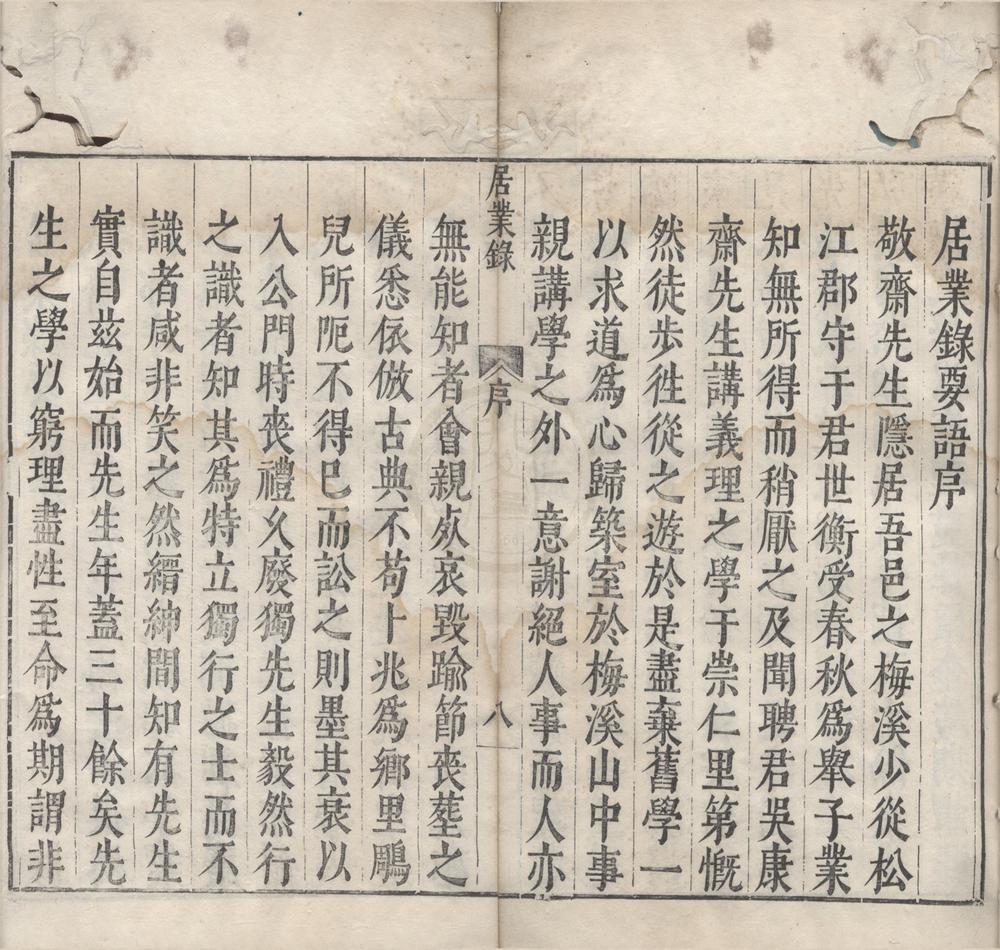 居業錄要語序
敬齋先生隱居吾邑之梅溪少從松
江郡守于君世衡受春秋爲舉子業
知無所得而稍厭之及聞聘君吳康
齋先生講義理之學于崇仁里第慨
然徒步徃從之遊於是盡棄舊學一
以求道爲心歸築室於梅溪山中事
親講學之外一意謝絕人事而人亦
居業錄
序
八
無能知者會親歿哀毀踰節丧塟之
儀悉依倣古典不苟卜兆爲鄉里鵰
兒所阨不得已而訟之則墨其衰以
入公門時丧禮久廢獨先生毅然行
之識者知其爲特立獨行之士而不
識者咸非笑之然縉紳間知有先生
實自兹始而先生年蓋三十餘矣先
生之學以窮理盡性至命爲期謂非